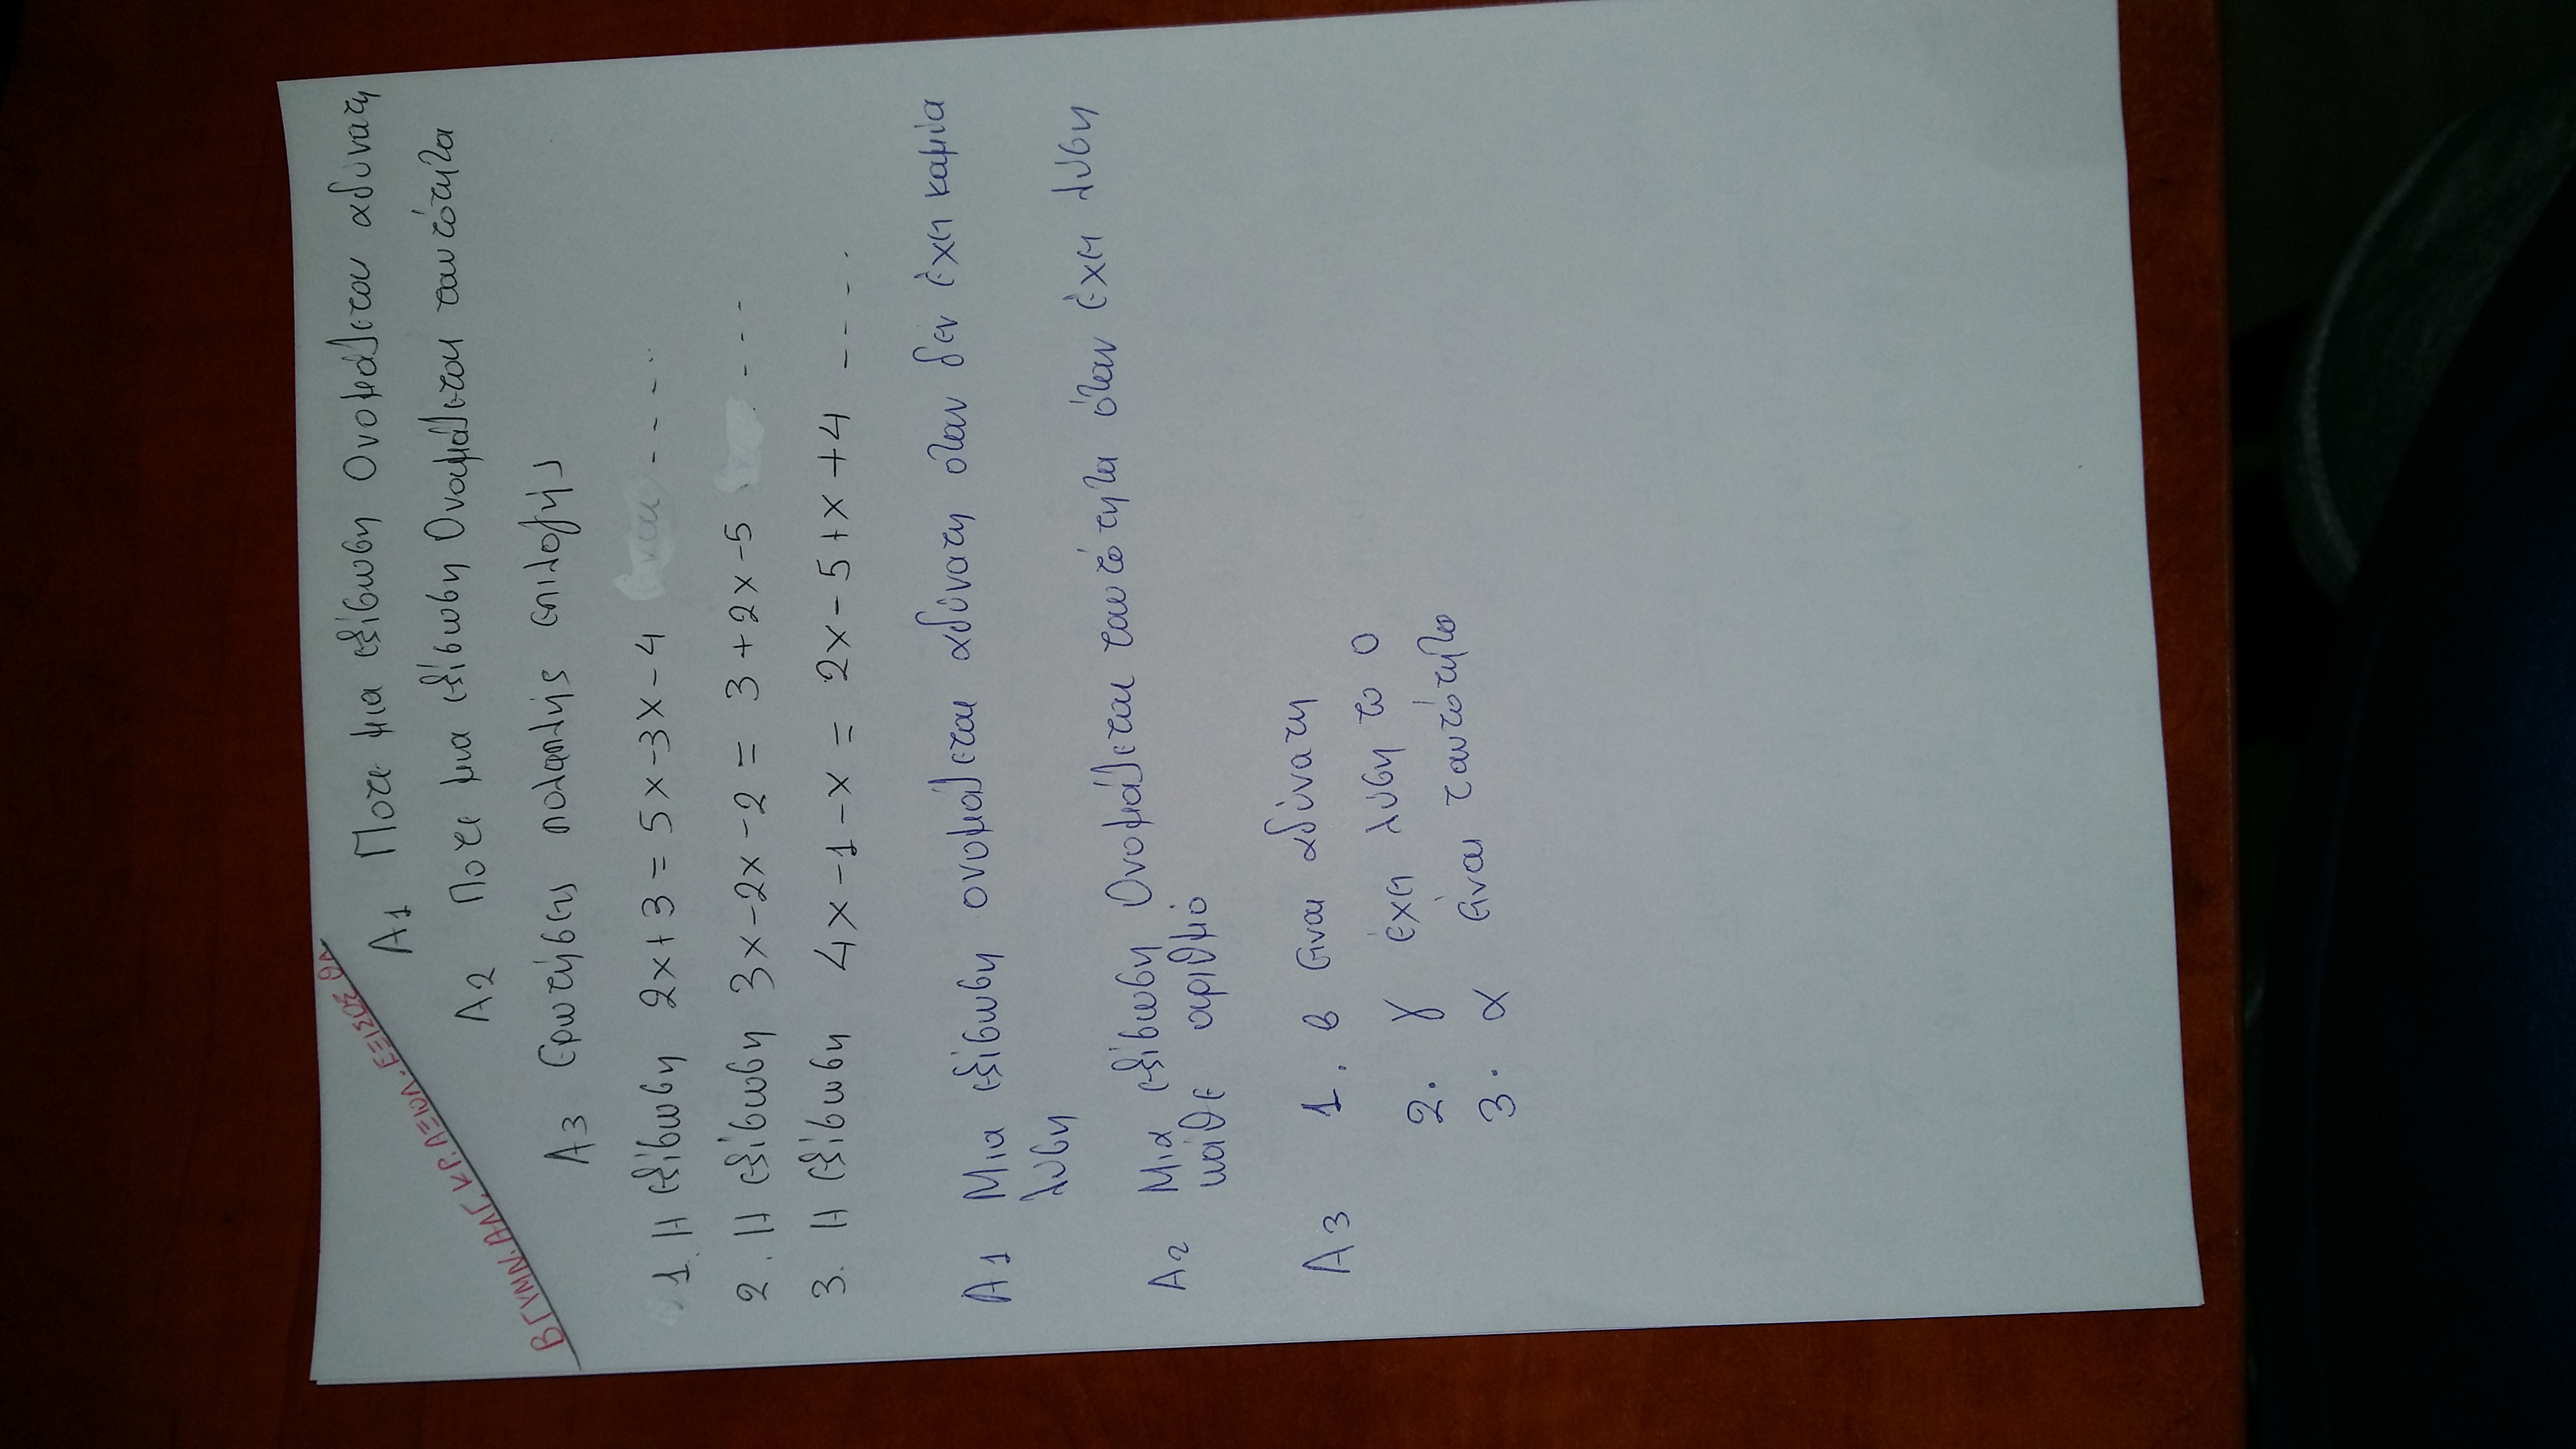 ΒΓΥΜΝ.ΑΛΓ.ΚΡ.ΑΞΙΟΛ.ΕΞΙΣΩΣ ΘΛ
Α1 Ποτε μια εξίσωση Ονομάζεται αδύνατη
Α2 Ποτε μια εξίσωση Ονομάζεται ταυτότητα
Α3 Ερωτήσεις πολαπλής επιλογής
1. Η εξίσωση 2x+3=5x-3x-4 ......
2. Η εξίσωση 3x-2x-2=3+2x-5 ....
3. Η εξίσωση 4x-1-x=2x-5+x+4 ....
Α1 Μια εξίσωση ονομάζεται αδύνατη όταν δεν έχει καμία
λύση
Α2 Μια εξίσωση Ονομάζεται ταυτότητα όταν έχει λύση
κάθε αριθμό
Α3 1. β είναι αδύνατη
2. γ έχει λύση το 0
3. α είναι ταυτότητα